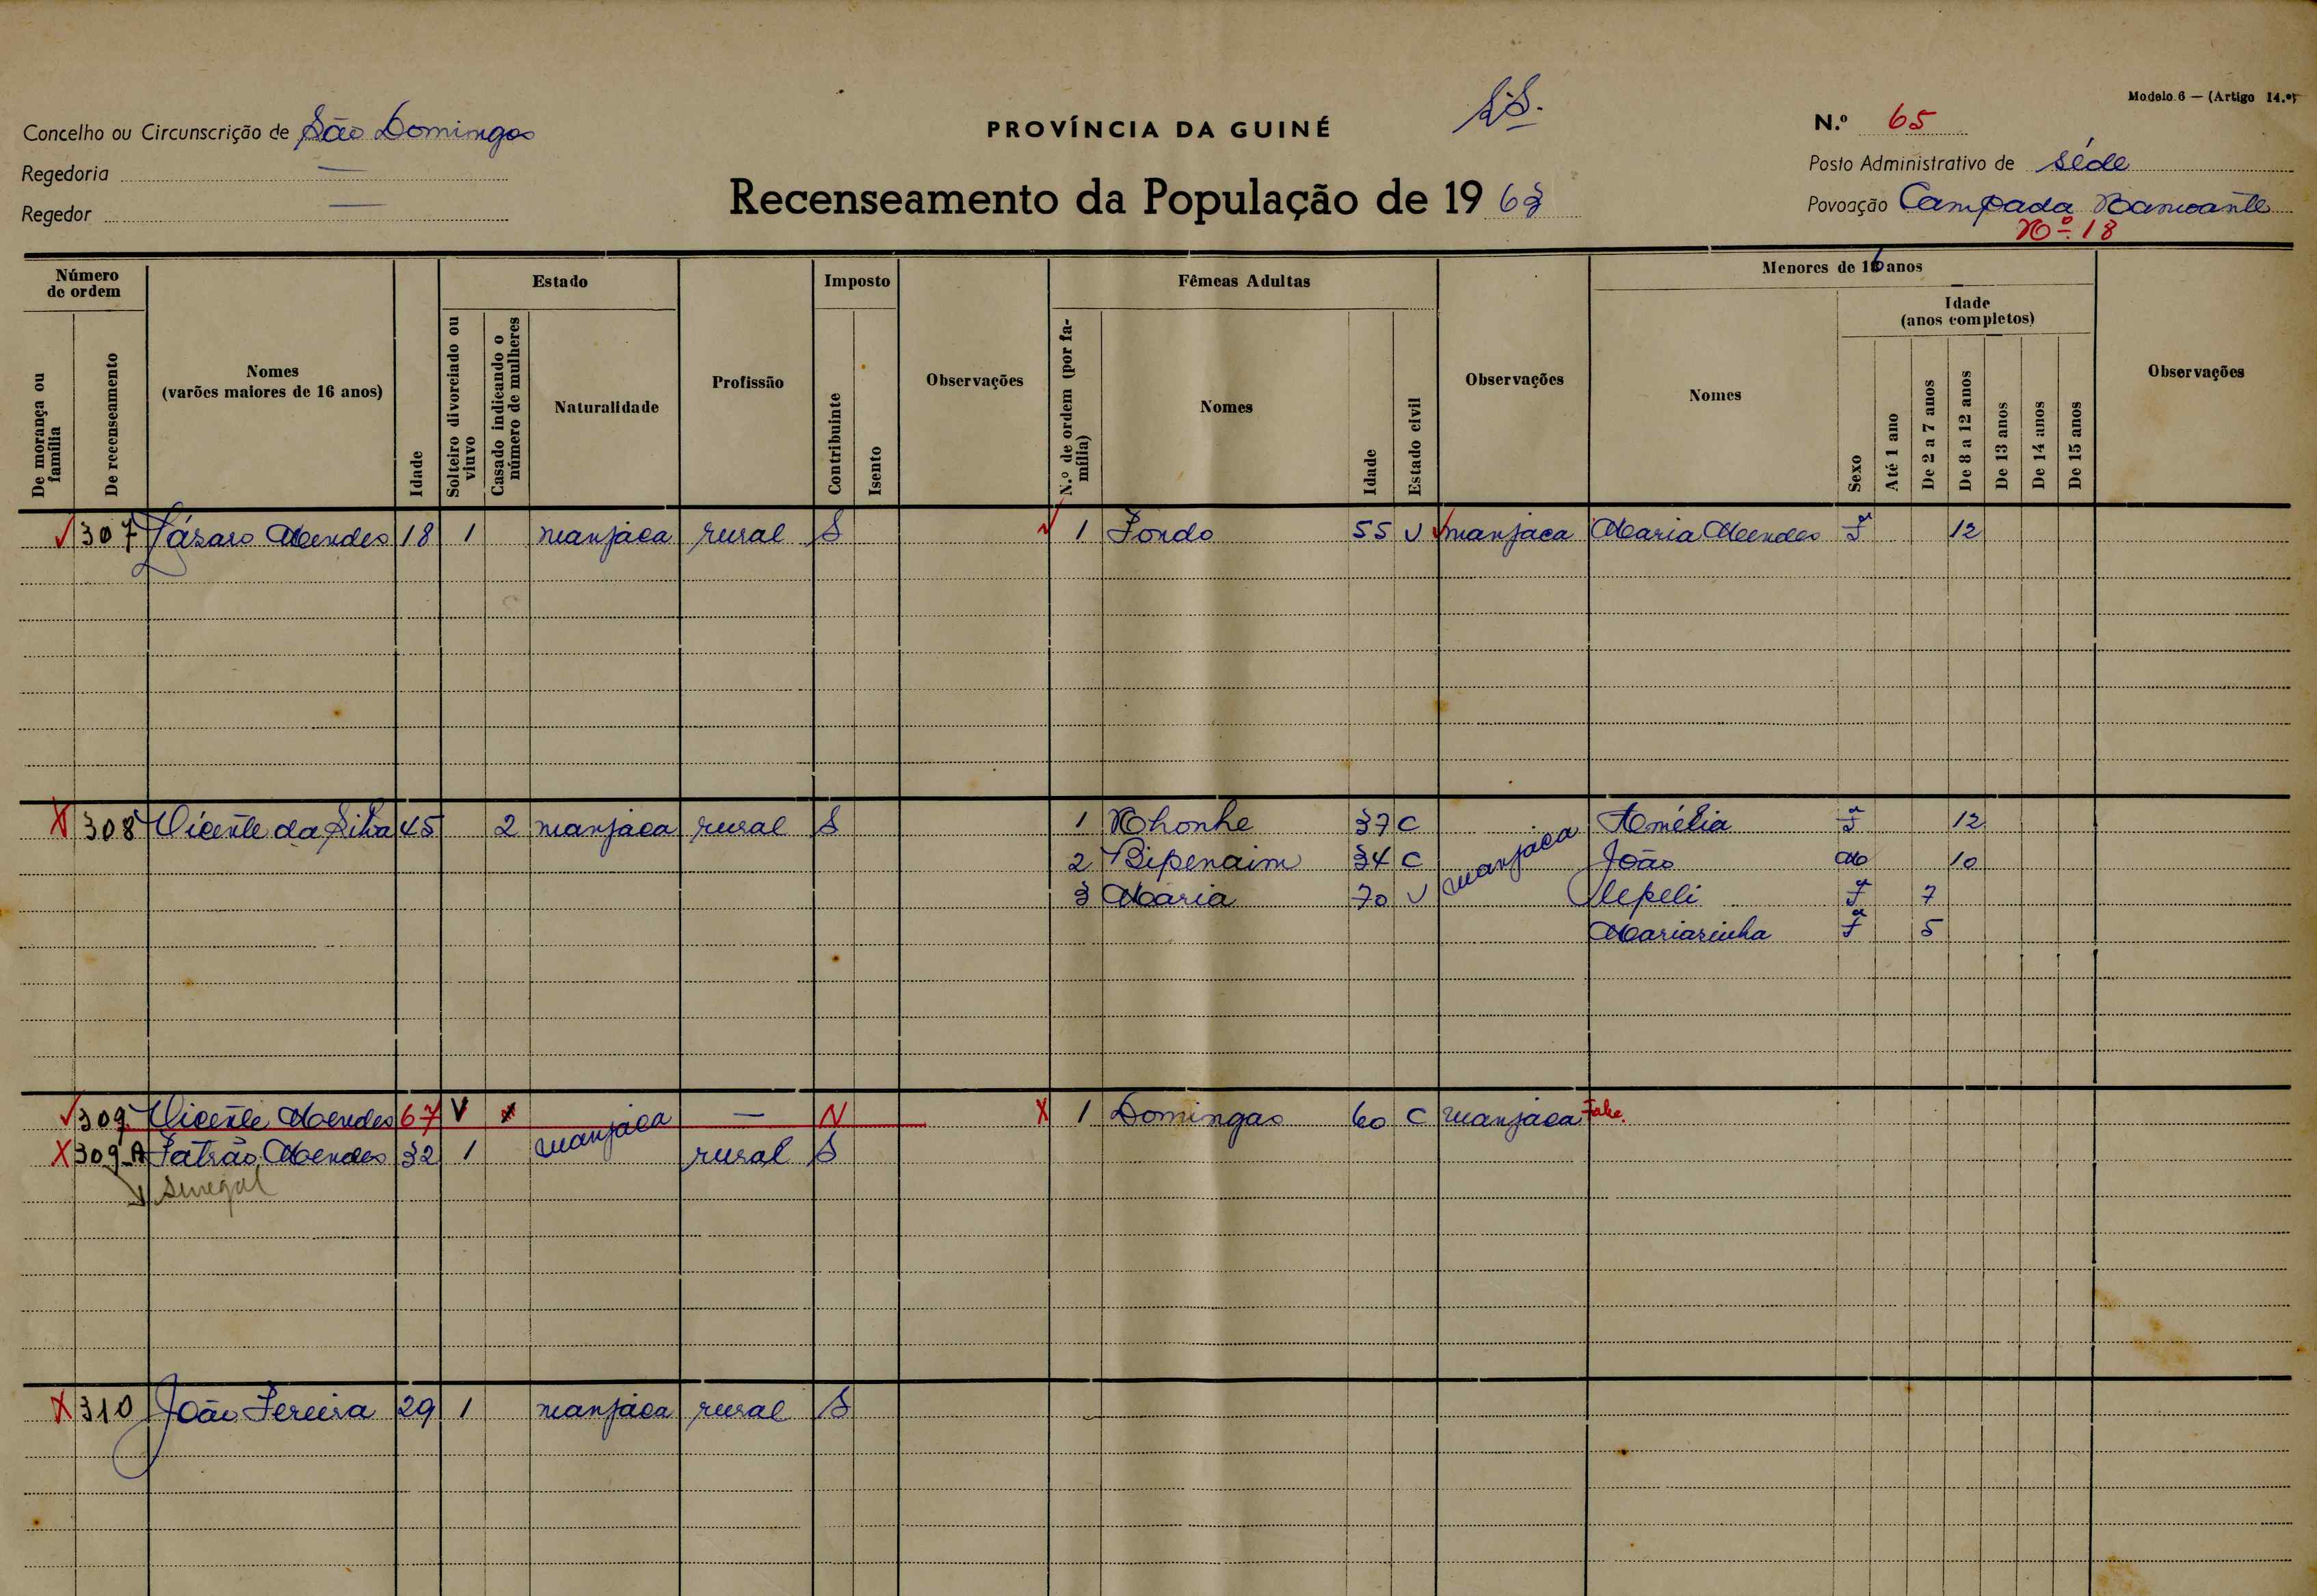 Modelo 6 — (Artigo 14.º)
Concelho ou Circunscrição de São Domingos
PROVÍNCIA DA GUINÉ
N.º 65
Regedoria —
Posto Administrativo de Séde
Regedor —
Recenseamento da População de 1963
Povoação Campada
Nº 18
Número de ordem
De morança ou família
De recenseamento
Nomes (varões maiores de 16 anos)
Idade
Estado
Solteiro divorciado ou viuvo
Casado indicando o número de mulheres
Naturalidade
Profissão
Imposto
Contribuinte
Isento
Observações
Fêmeas Adultas
N.º de ordem (por família)
Nomes
Idade
Estado civil
Observações
Menores de 16 anos
Nomes
Sexo
Idade (anos completos)
Até 1 ano
De 2 a 7 anos
De 8 a 12 anos
De 13 anos
De 14 anos
De 15 anos
Observações
307 Lázaro Mendes 18 1 manjaca rural S 1 Fondo 55 V manjaca Maria Mendes F 12
308 Vicente da Silva 45 2 manjaca rural S 1 Nhonhe 37 C manjaca Amélia F 12
2 Bipenaim 34 C João M 10
3 Maria 70 V Upeli F 7
Mariarinha F 5
309 Vicente Mendes 67 V manjaca — N 1 Domingas 60 C manjaca Fale.
309-A Patrão Mendes 32 1 rural S
Senegal
310 João Pereira 29 1 manjaca rural S